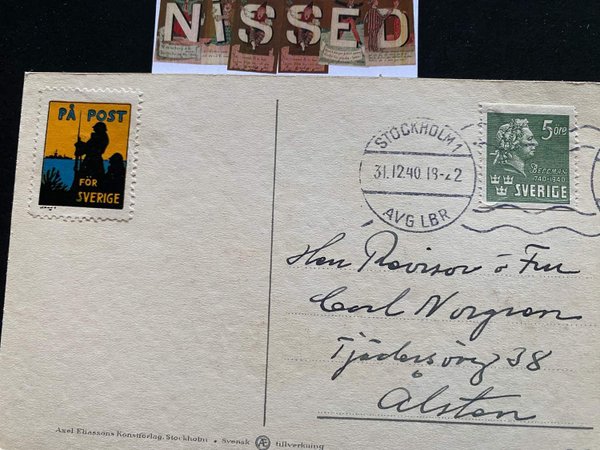 NISSED
PÅ POST
FÖR
SVERIGE
STOCKHOLM 1
31.12.40.19-22
AVG LBR
5 öre
BELLMAN
1740-1940
SVERIGE
Herr Revisor o Fru
Carl Norgren
38
Ålsten
Axel Eliassons Konstförlag, Stockholm • Svensk Æ tillverkning